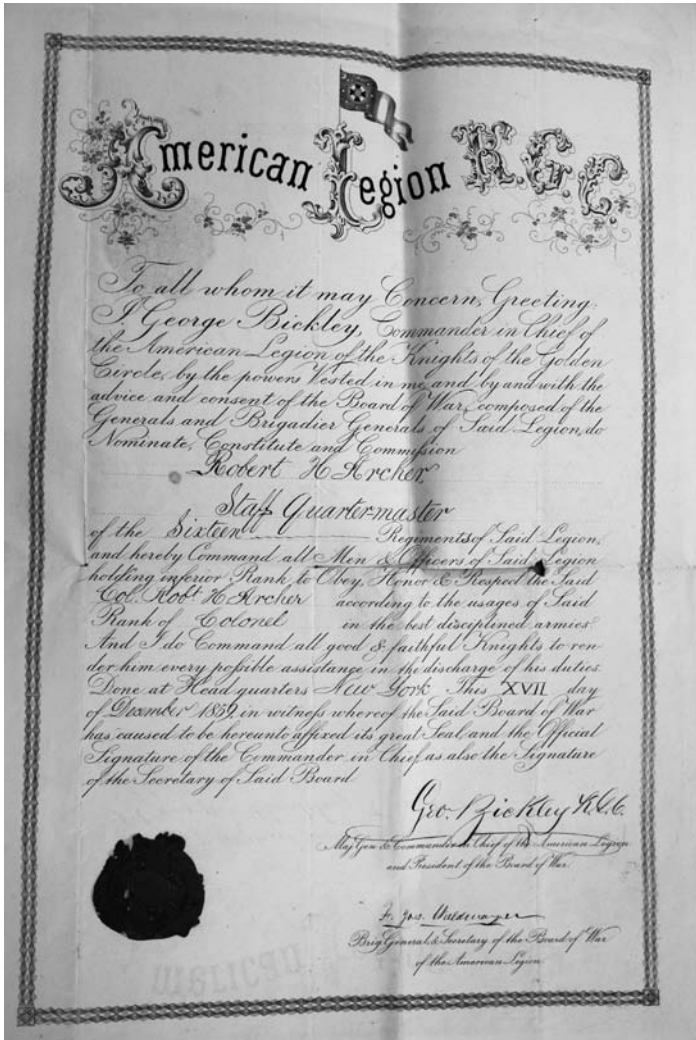 American Legion K.G.C.
To all whom it may Concern, Greeting:
I George Bickley, Commander in Chief of
the American Legion of the Knights of the Golden
Circle, by the powers Vested in me and by and with the
advice and consent of the Board of War, composed of the
Generals and Brigadier Generals of Said Legion, do
Nominate, Constitute and Commission
Robert H Archer
Staff Quartermaster
of the Sixteen Regiments of Said Legion,
and hereby Command all Men & Officers of Said Legion
holding inferior Rank to Obey, Honor & Respect the Said
Col. Robt H Archer according to the usages of Said
Rank of Colonel in the best disciplined armies
And I do Command all good & faithful Knights to ren
der him every possible assistance in the discharge of his duties
Done at Head quarters New York This XVII day
of December 1859, in witness whereof the Said Board of War
has caused to be hereunto affixed its great Seal, and the Official
Signature of the Commander in Chief, as also the Signature
of the Secretary of Said Board
Geo. Bickley K.G.C.
Maj Gen & Commander in Chief of the American Legion
and President of the Board of War.
Brig General & Secretary of the Board of War
of the American Legion